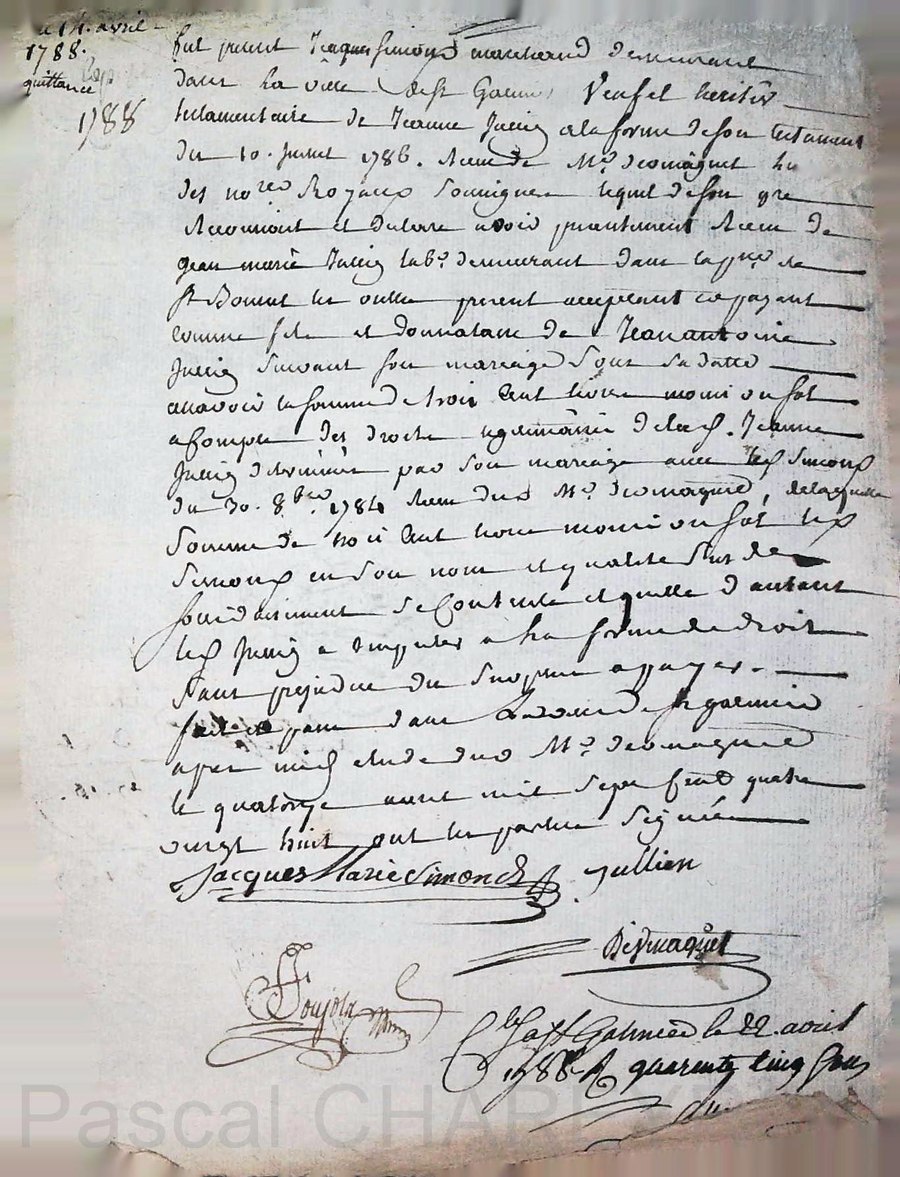 14. avril
1788.
quittance
1788
fut present Jacques Simond marchand demeurant
dans la ville de St Galmier veuf et heritier
testamentaire de Jeanne Jullien a la forme de son testament
du 10. Juillet 1786. Receu de Me
des nores Royaux lequel de son gre
Reconnoit et declare avoir presentement Receu de
jean marie Jullien labr. demeurant dans la psse de
St Bonnet les oulles present acceptant et payant
comme fils et donnataire de Jean antoine
Jullien suivant son mariage sous sa datte
a savoir la somme de trois cent livres moins un sol
a compte des droits de lad. Jeanne
Jullien par son mariage avec led. Simond
du 30. 8bre 1784 Receu dud Me de laquelle
somme de trois cent livres moins un sol led
Simond en son nom et qualité
se contente et quitte d'autant
led Jullien a imputer a la forme de droit
sans prejudice du surplus a payer.
fait et passé dans la ville de St galmier
apres midi etude dud Me
le quatorze avril mil sept cent quatre
vingt huit ont les parties signé
Jacques Marie Simond Jullien
Galmier le 22. avril
1788 R quarente cinq sous
Pascal